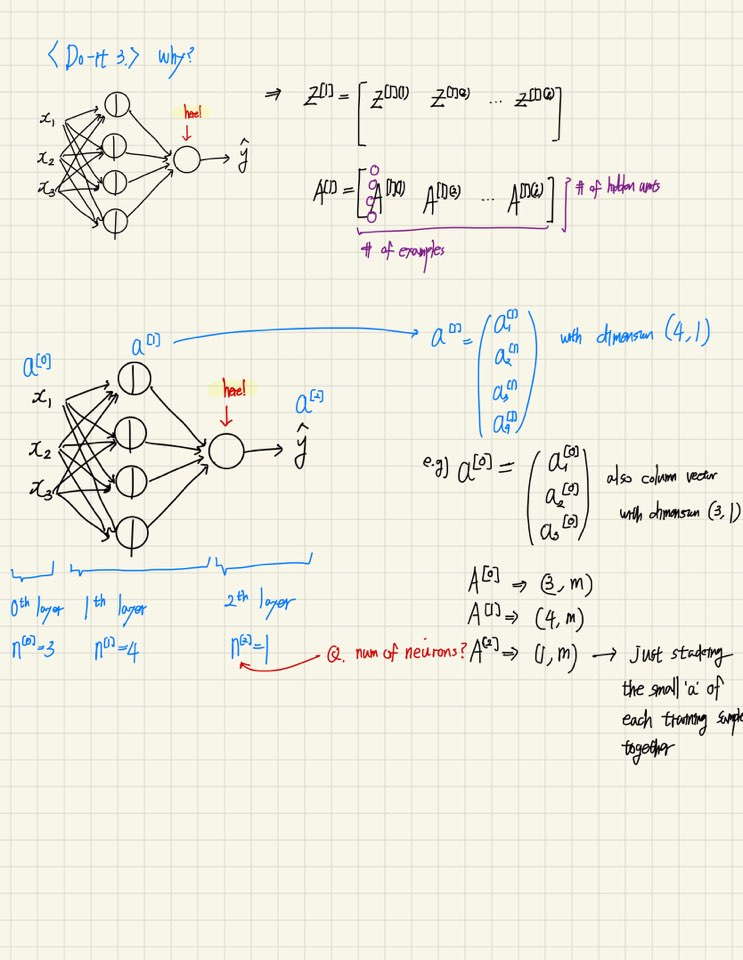 <Do-it 3.> why?
x₁
x₂
x₃
here!
ŷ
⇒ Z^[1] = [ Z^[1](1) Z^[1](2) ... Z^[1](i) ]
A^[1] = [ A^[1](1) A^[1](2) ... A^[1](i) ]
# of hidden units
# of examples
a^[0]
a^[1]
x₁
x₂
x₃
here!
a^[2]
ŷ
a^[1] = ( a₁^[1]
a₂^[1]
a₃^[1]
a₄^[1] )
with dimension (4,1)
e.g) a^[0] = ( a₁^[0]
a₂^[0]
a₃^[0] )
also column vector
with dimension (3,1)
0th layer 1th layer 2th layer
n^[0]=3 n^[1]=4 n^[2]=1
Q. num of neurons?
A^[0] ⇒ (3, m)
A^[1] ⇒ (4, m)
A^[2] ⇒ (1, m) → just stacking
the small 'a' of
each training sample
together